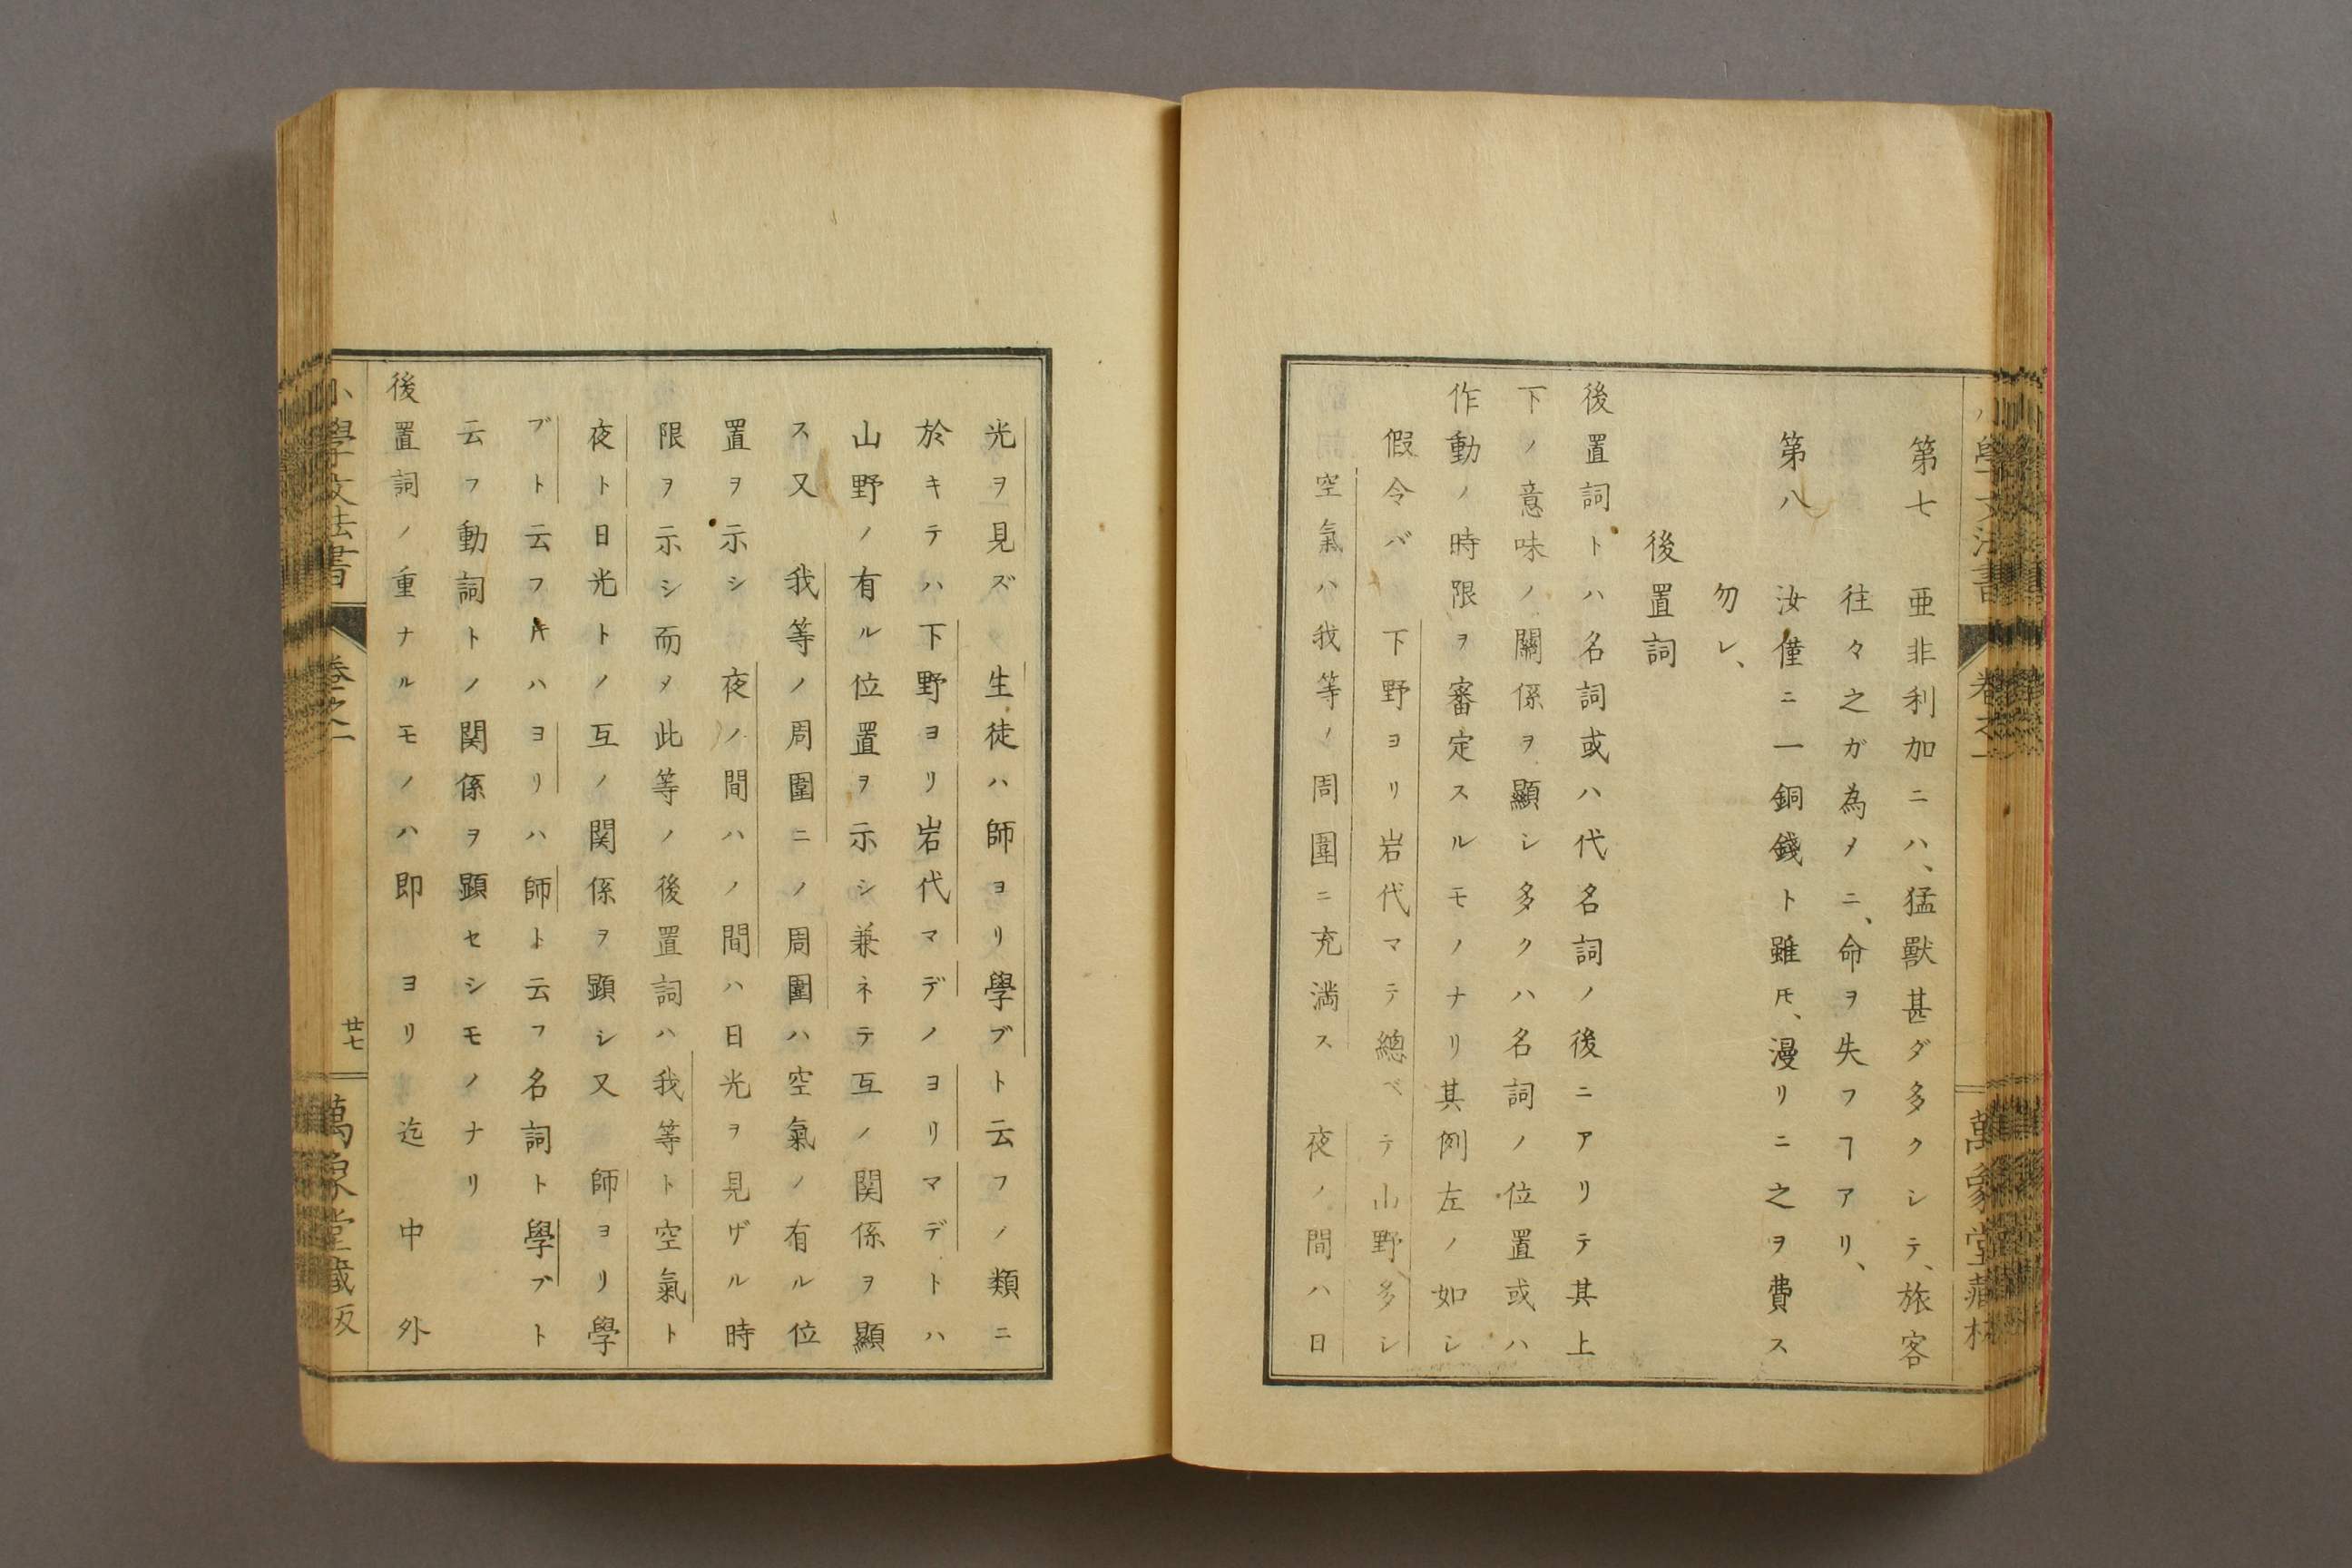 第七　亜非利加ニハ、猛獣甚ダ多クシテ、旅客
往々之ガ為メニ、命ヲ失フヿアリ、
第八　汝僅ニ一銅錢ト雖𪜈、漫リニ之ヲ費ス
勿レ、
後置詞
後置詞トハ名詞或ハ代名詞ノ後ニアリテ其上
下ノ意味ノ關係ヲ顯シ多クハ名詞ノ位置或ハ
作動ノ時限ヲ審定スルモノナリ其例左ノ如シ
假令バ　下野ヨリ岩代マテ總ベテ山野多シ
空氣ハ我等ノ周圍ニ充満ス　夜ノ間ハ日
光ヲ見ズ　生徒ハ師ヨリ學ブト云フノ類ニ
於キテハ下野ヨリ岩代マデノヨリマデトハ
山野ノ有ル位置ヲ示シ兼ネテ互ノ関係ヲ顯
ス又　我等ノ周圍ニノ周圍ハ空氣ノ有ル位
置ヲ示シ　夜ノ間ハノ間ハ日光ヲ見ザル時
限ヲ示シ而〆此等ノ後置詞ハ我等ト空氣ト
夜ト日光トノ互ノ関係ヲ顕シ又　師ヨリ學
ブト云フ𪜈ハヨリハ師ト云フ名詞ト學ブト
云フ動詞トノ関係ヲ顕セシモノナリ
後置詞ノ重ナルモノハ即　ヨリ　迄　中　外
小學文法書　卷之一　廿七　萬象堂藏版